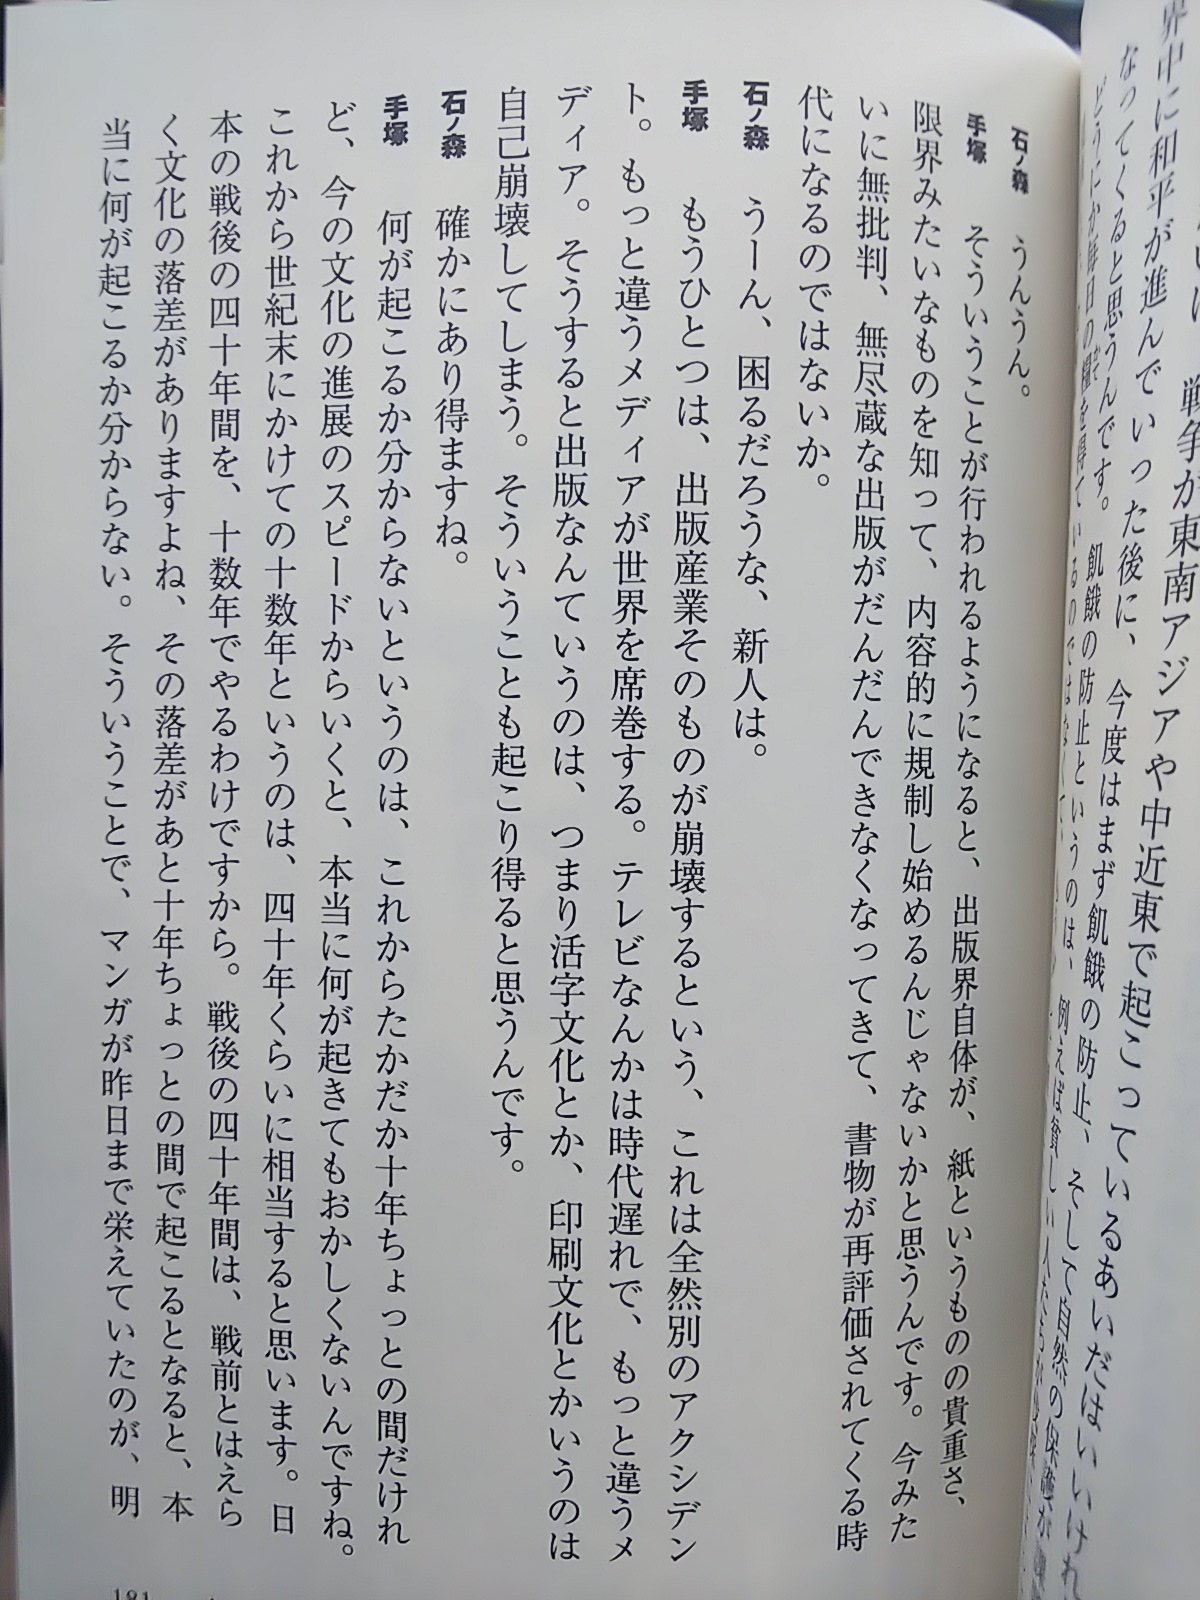 戦争が東南アジアや中近東で起こっているあいだはいいけれ
界中に和平が進んでいった後に、今度はまず飢餓の防止、そして自然の保護が
なってくると思うんです。飢餓の防止というのは、例えば貧しい人たちが
どうにか毎日の糧を得ているのではなくて
石ノ森　うんうん。
手塚　そういうことが行われるようになると、出版界自体が、紙というものの貴重さ、
限界みたいなものを知って、内容的に規制し始めるんじゃないかと思うんです。今みた
いに無批判、無尽蔵な出版がだんだんできなくなってきて、書物が再評価されてくる時
代になるのではないか。
石ノ森　うーん、困るだろうな、新人は。
手塚　もうひとつは、出版産業そのものが崩壊するという、これは全然別のアクシデン
ト。もっと違うメディアが世界を席巻する。テレビなんかは時代遅れで、もっと違うメ
ディア。そうすると出版なんていうのは、つまり活字文化とか、印刷文化とかいうのは
自己崩壊してしまう。そういうことも起こり得ると思うんです。
石ノ森　確かにあり得ますね。
手塚　何が起こるか分からないというのは、これからたかだか十年ちょっとの間だけれ
ど、今の文化の進展のスピードからいくと、本当に何が起きてもおかしくないんですね。
これから世紀末にかけての十数年というのは、四十年くらいに相当すると思います。日
本の戦後の四十年間を、十数年でやるわけですから。戦後の四十年間は、戦前とはえら
く文化の落差がありますよね、その落差があと十年ちょっとの間で起こるとなると、本
当に何が起こるか分からない。そういうことで、マンガが昨日まで栄えていたのが、明
181